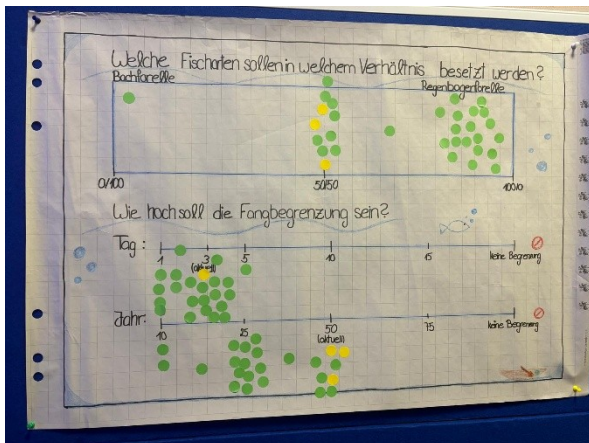 Welche Fischarten sollen in welchem Verhältnis besetzt werden?
Bachforelle
Regenbogenforelle
0/100
50/50
100/0
Wie hoch soll die Fangbegrenzung sein?
Tag: 1 3 5 10 15 keine Begrenzung
(aktuell)
Jahr: 10 25 50 75 keine Begrenzung
(aktuell)